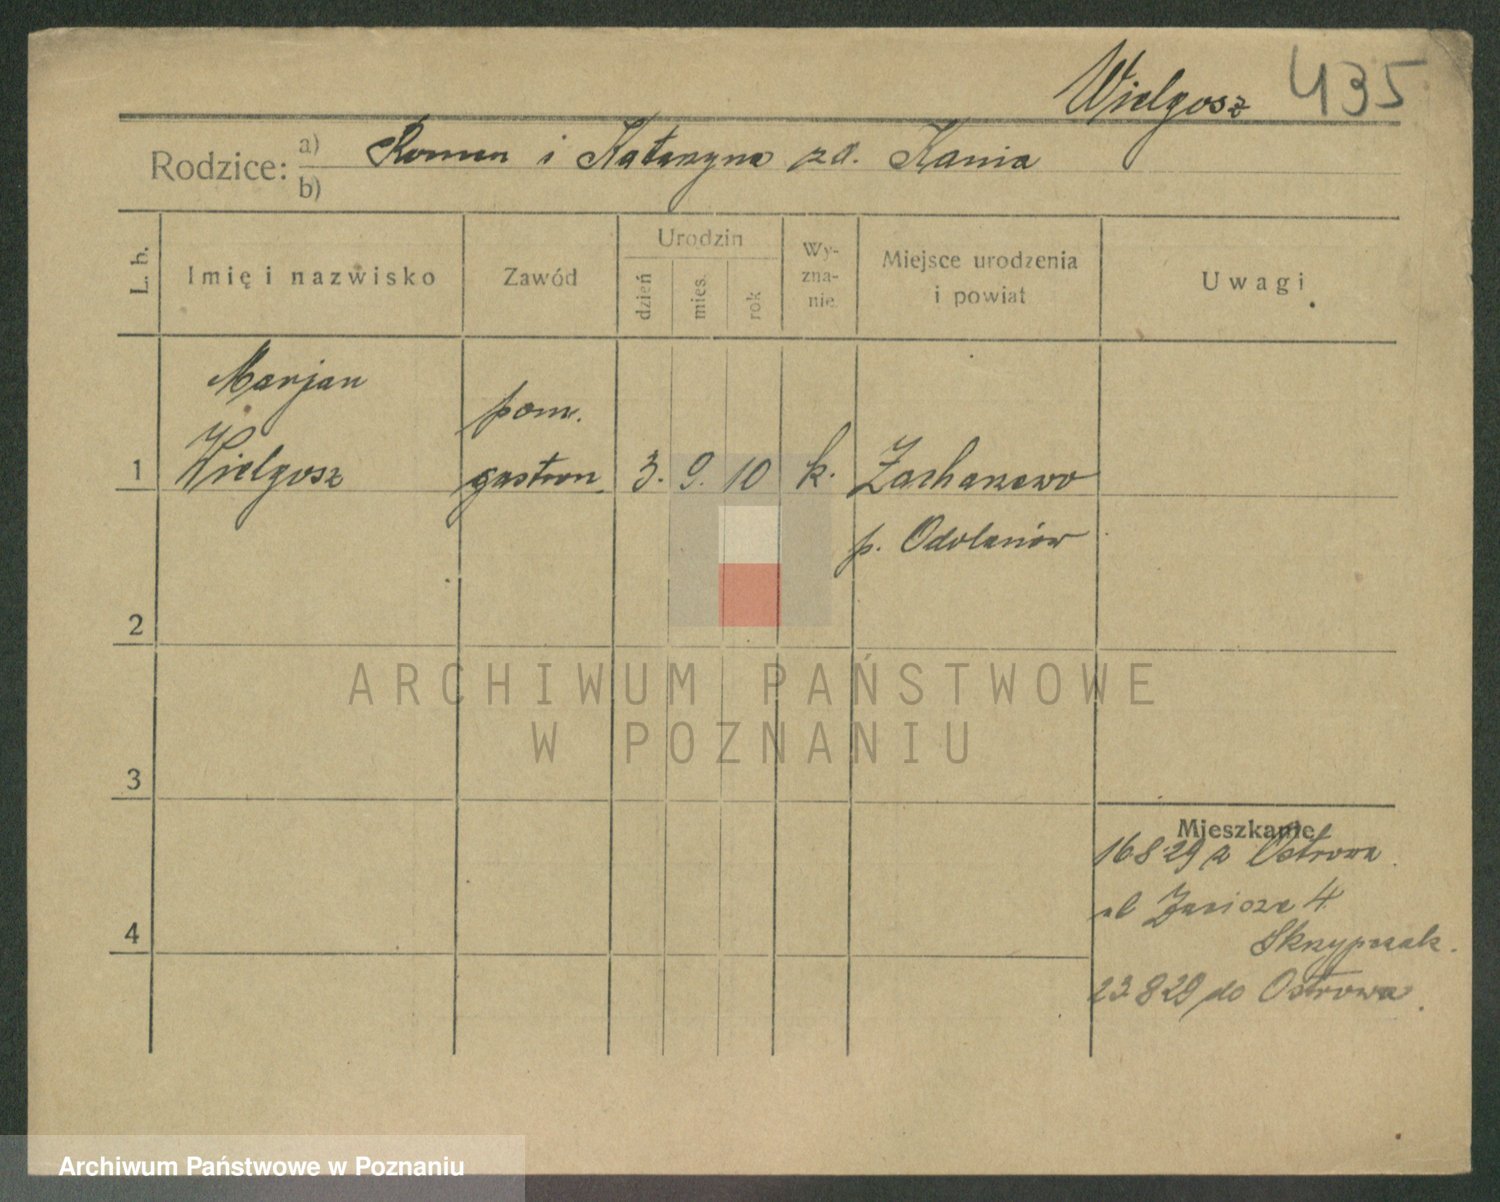 Wielgosz 435
Rodzice: a) Roman i Katarzyna zd. Kania
b)
L. b.
Imię i nazwisko
Zawód
Urodzin
dzień
mies.
rok
Wy-
zna-
nie.
Miejsce urodzenia
i powiat
Uwagi
Marjan
pom.
1 Wielgosz gastron. 3. 9. 10 k. Zacharzewo
p. Odolanów
2
ARCHIWUM PAŃSTWOWE
W POZNANIU
3
Mieszkanie
16 8 29 z Ostrowa
4
ul 4
Skrzypczak.
23 8 29 do Ostrowa.
Archiwum Państwowe w Poznaniu